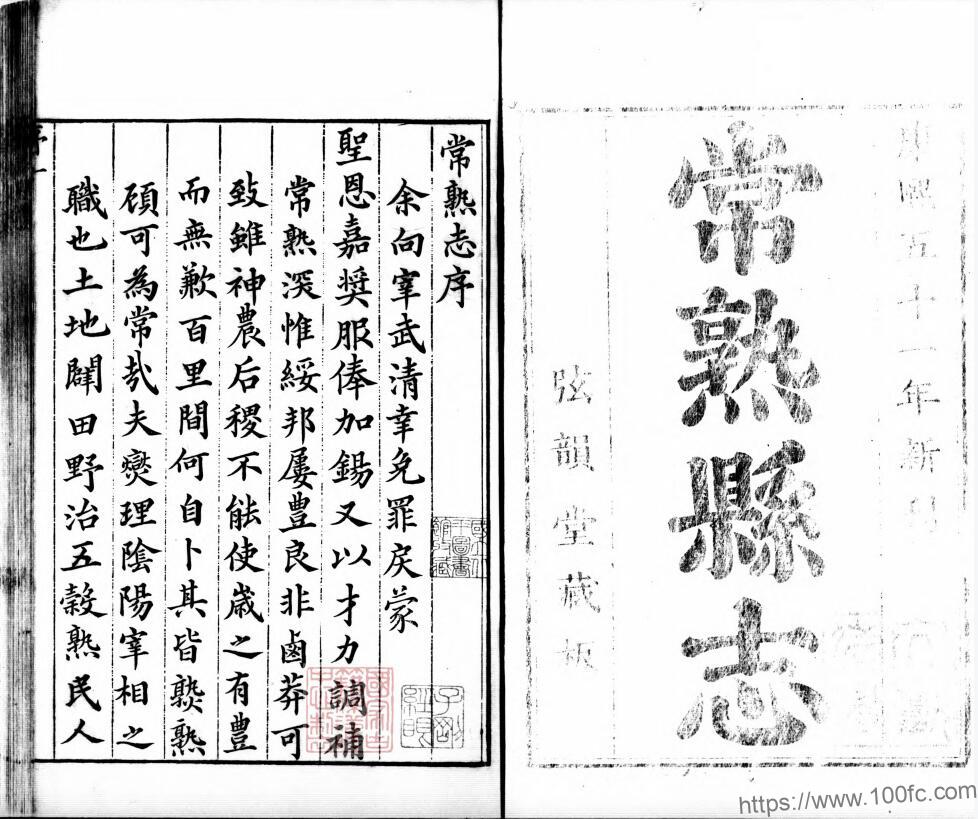 康熙五十一年新刊
常熟縣志
弦韻堂藏板
常熟志序
余向宰武清幸免罪戾蒙
聖恩嘉奬服俸加錫又以才力調補
常熟深惟綏邦屢豊良非鹵莽可
致雖神農后稷不能使歲之有豊
而無歉百里間何自卜其皆熟熟
頋可為常㢤夫爕理陰陽宰相之
職也土地闢田野治五糓熟民人
https://www.100fc.com